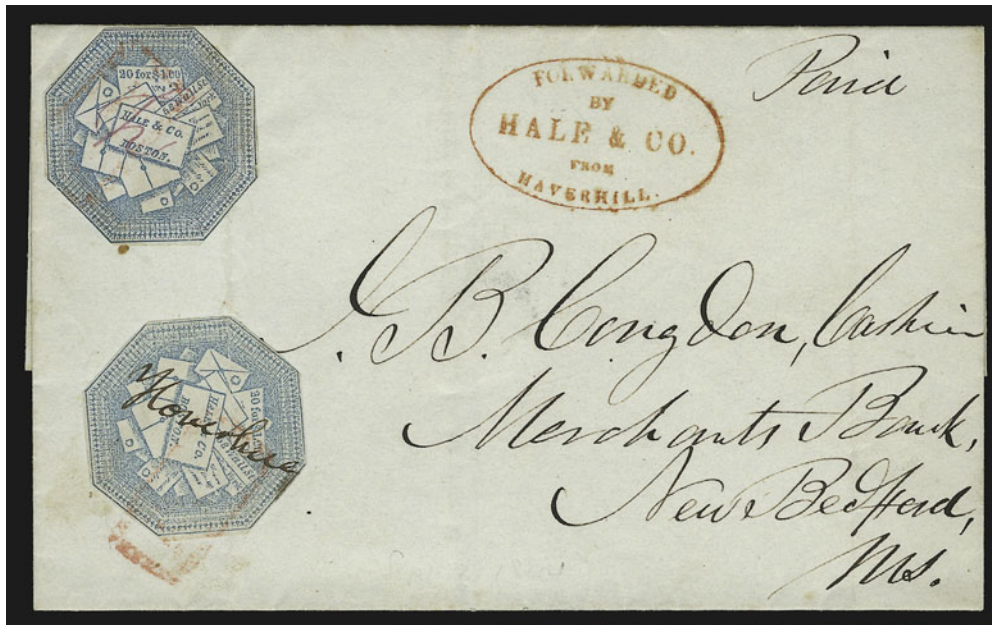 20 for $1.00
HALE & CO.
BOSTON.
FORWARDED
BY
HALE & CO.
FROM
HAVERHILL.
Paid
J. B. Congdon, Cashier
Merchants Bank,
New Bedford,
Ms.
20 for $1.00
HALE & CO.
BOSTON.
Haverhill